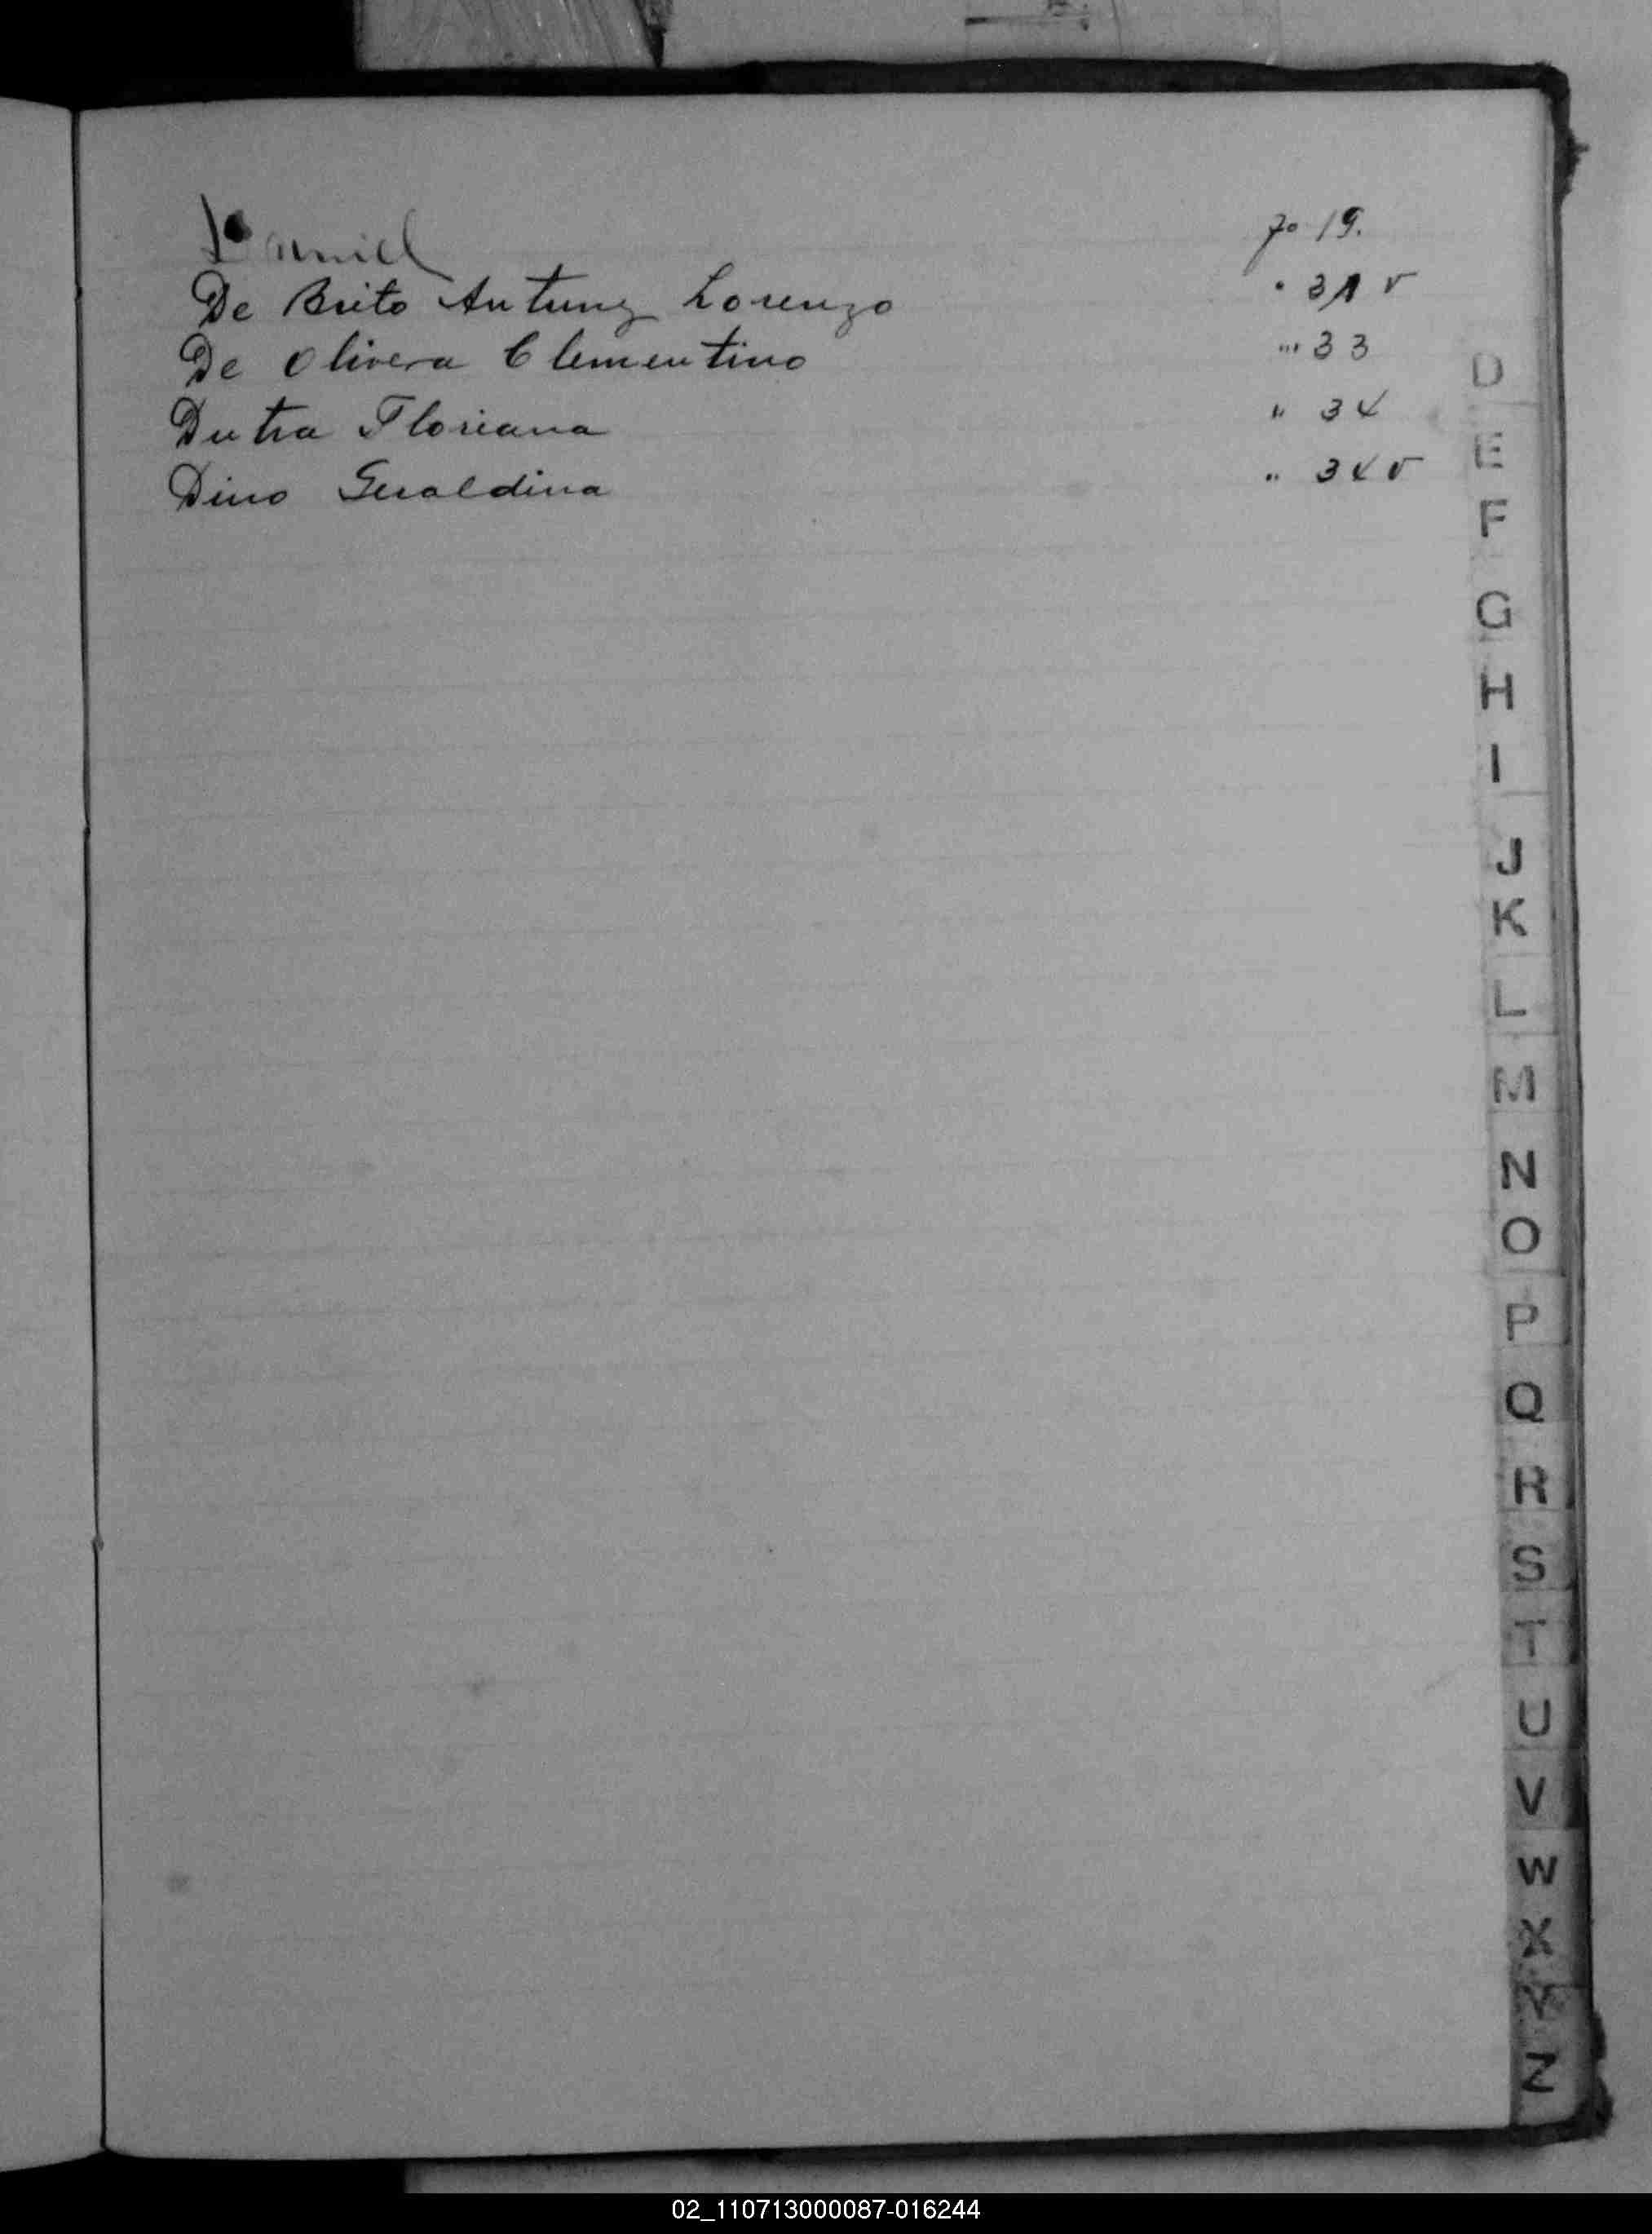 Daniel fo 19.
De Brito Antunez Lorenzo " 31 v
De Olivera Clementino " 33
Dutra Floriana " 34
Dino Geraldina " 34 v
D
E
F
G
H
I
J
K
L
M
N
O
P
Q
R
S
T
U
V
W
X
Y
Z
02_110713000087-016244